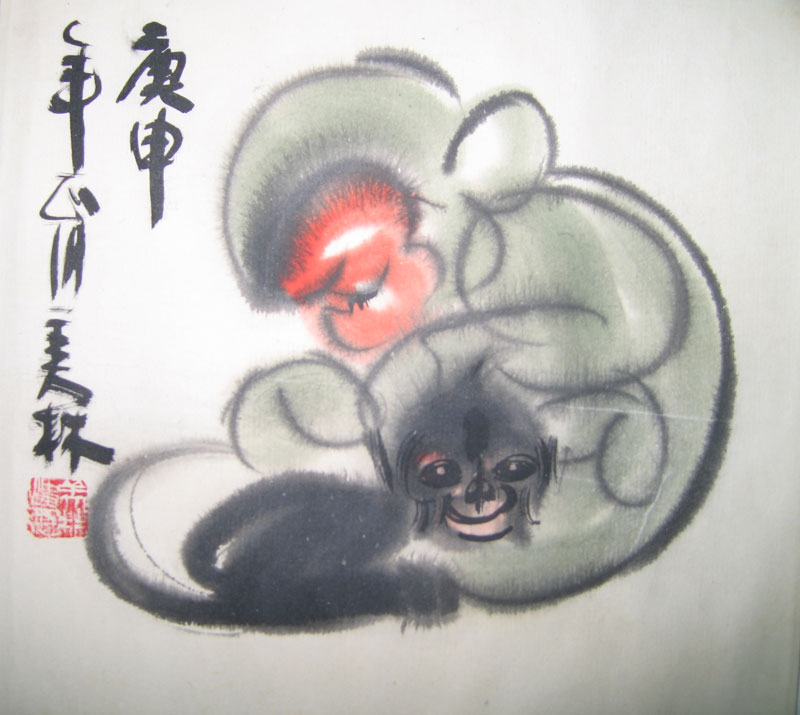 庚申
年正月美林